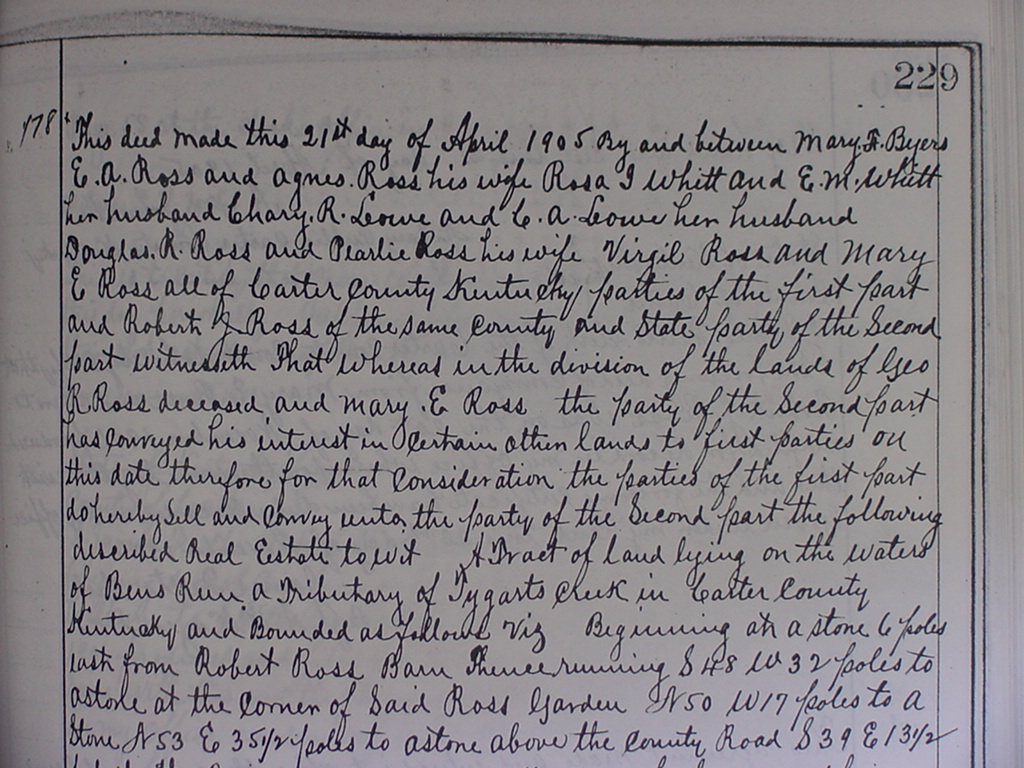 229
178
This deed made this 21st day of April 1905 By and between Mary. F. Byers
E. A. Ross and Agnes. Ross his wife Rosa I Whitt and E. M. Whitt
her husband Chary. R. Lowe and C. A. Lowe her husband
Douglas. R. Ross and Pearlie Ross his wife Virgil Ross and Mary
E Ross all of Carter County Kentucky parties of the first part
and Robert J Ross of the same County and State party of the Second
part witnesseth That whereas in the division of the lands of Geo
R. Ross deceased and Mary. E Ross the party of the Second part
has Conveyed his interest in Certain other lands to first parties on
this date therefore for that Consideration the parties of the first part
do hereby Sell and Convey unto, the party of the Second part the following
described Real Estate to wit A Tract of land lying on the waters
of Bens Run a Tributary of Tygarts Creek in Carter County
Kentucky and Bounded as follows Viz Beginning at a stone 6 poles
east from Robert Ross Barn Thence running S 48 W 32 poles to
a stone at the Corner of Said Ross Garden N 50 W 17 poles to a
Stone N 53 E 35 1/2 poles to a stone above the County Road S 39 E 13 1/2